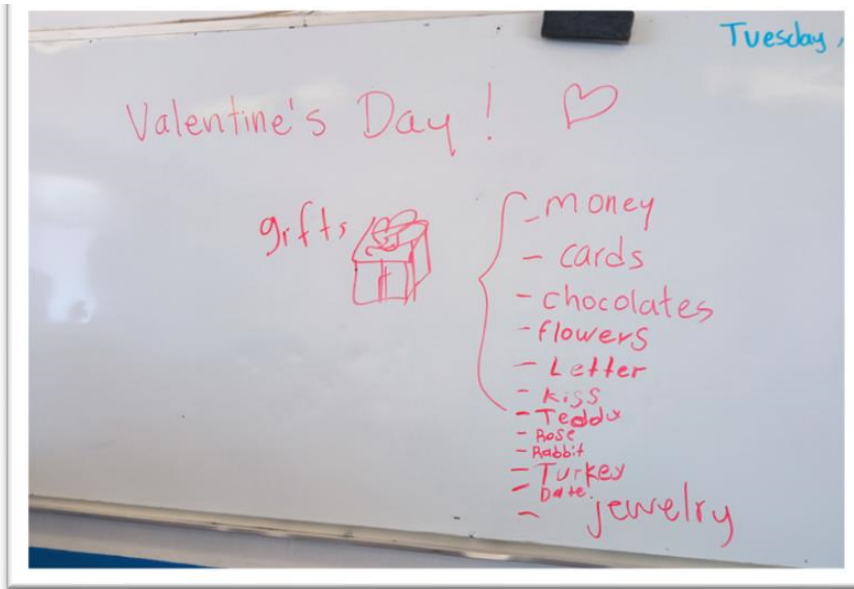 Tuesday,
Valentine's Day!
gifts
- money
- cards
- chocolates
- flowers
- Letter
- kiss
- Teddy
- Rose
- Rabbit
- Turkey
- Date.
- jewelry